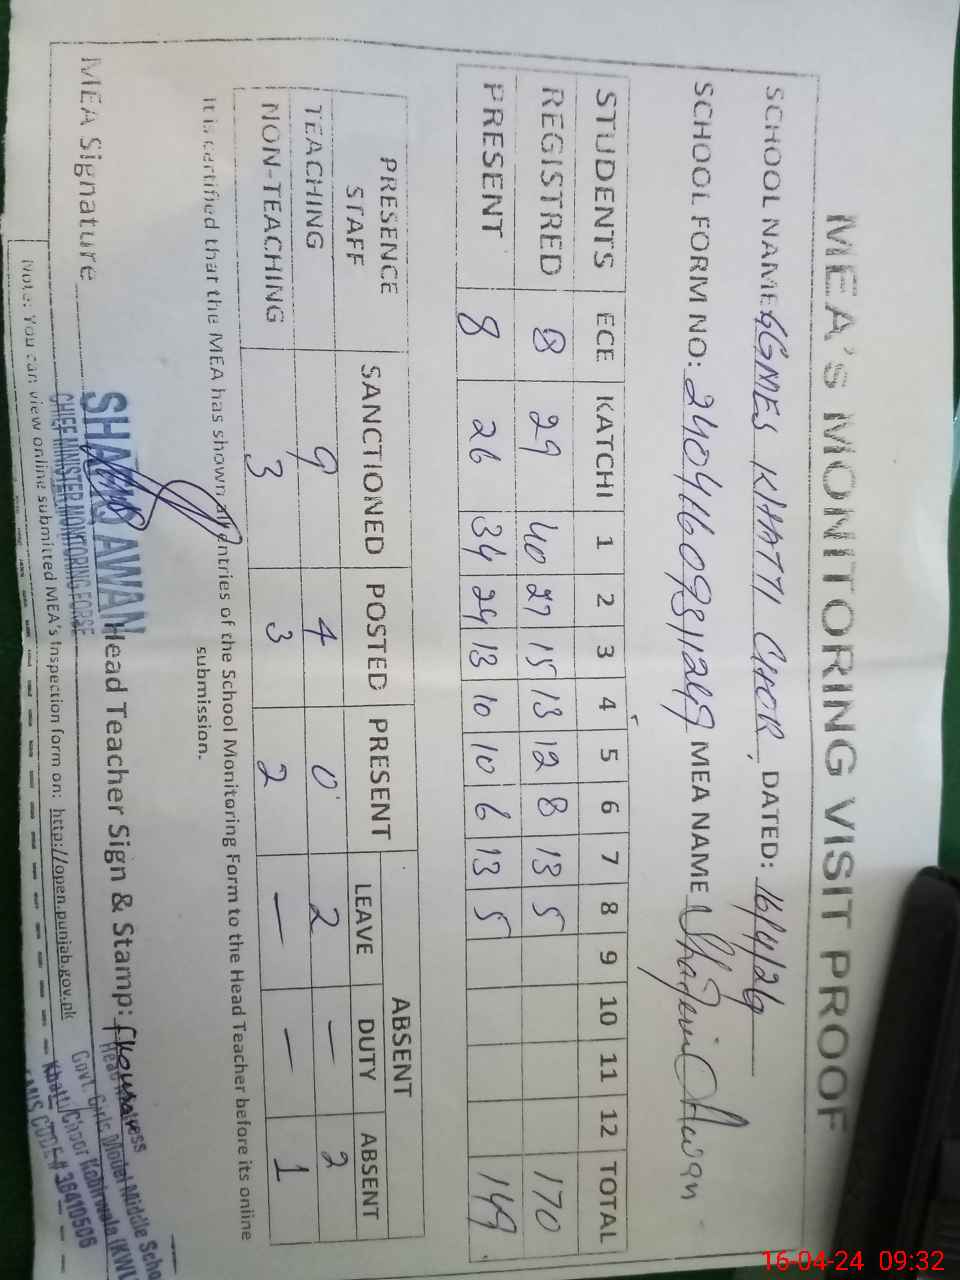 MEA'S MONITORING VISIT PROOF
SCHOOL NAME GGMES KHATTI CHOR, DATED: 16/4/24
SCHOOL FORM NO: MEA NAME Awan
STUDENTS ECE KATCHI 1 2 3 4 5 6 7 8 9 10 11 12 TOTAL
REGISTRED 8 29 40 27 15 13 12 8 13 5 170
PRESENT 8 26 34 24 13 10 10 6 13 5 149
PRESENCE STAFF SANCTIONED POSTED PRESENT ABSENT
LEAVE DUTY ABSENT
TEACHING 9 4 0 2 — 2
NON-TEACHING 3 3 2 — — 1
It is certified that the MEA has shown all entries of the School Monitoring Form to the Head Teacher before its online
submission.
MEA Signature Head Teacher Sign & Stamp:
SHAMS AWAN
CHIEF MINISTER MONITORING FORSE
Headmistress
Govt. Girls Model Middle School
Khatti Choor Kabirwala (KWL
EMIS CODE # 36410506
Note: You can view online submitted MEA's Inspection form on: http://open.punjab.gov.pk
16-04-24 09:32